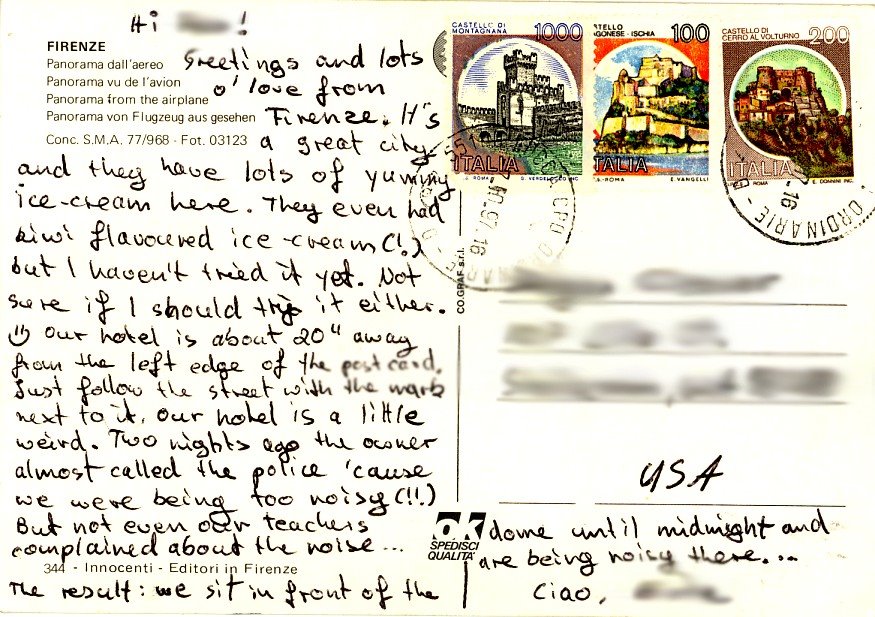 Hi !
FIRENZE
Panorama dall'aereo
Panorama vu de l'avion
Panorama from the airplane
Panorama von Flugzeug aus gesehen
Conc. S.M.A. 77/968 - Fot. 03123
Greetings and lots
o' love from
Firenze. It's
a great city
and they have lots of yummy
ice-cream here. They even had
kiwi flavoured ice-cream (!)
but I haven't tried it yet. Not
sure if I should try it either.
Our hotel is about 20" away
from the left edge of the postcard.
Just follow the street with the mark
next to it. Our hotel is a little
weird. Two nights ago the owner
almost called the police 'cause
we were being too noisy (!!)
But not even our teachers
complained about the noise...
344 - Innocenti - Editori in Firenze
The result: we sit in front of the
dome until midnight and
are being noisy there...
Ciao,
CASTELLO DI
MONTAGNANA
1000
ITALIA
100
ISCHIA
ITALIA
ROMA
E. VANGELLI
CASTELLO DI
CERRO AL VOLTURNO
200
ITALIA
ROMA
E. DONNINI INC.
97.16
ORDINARIE
CO.GRAF s.r.l.
USA
ok
SPEDISCI
QUALITA'